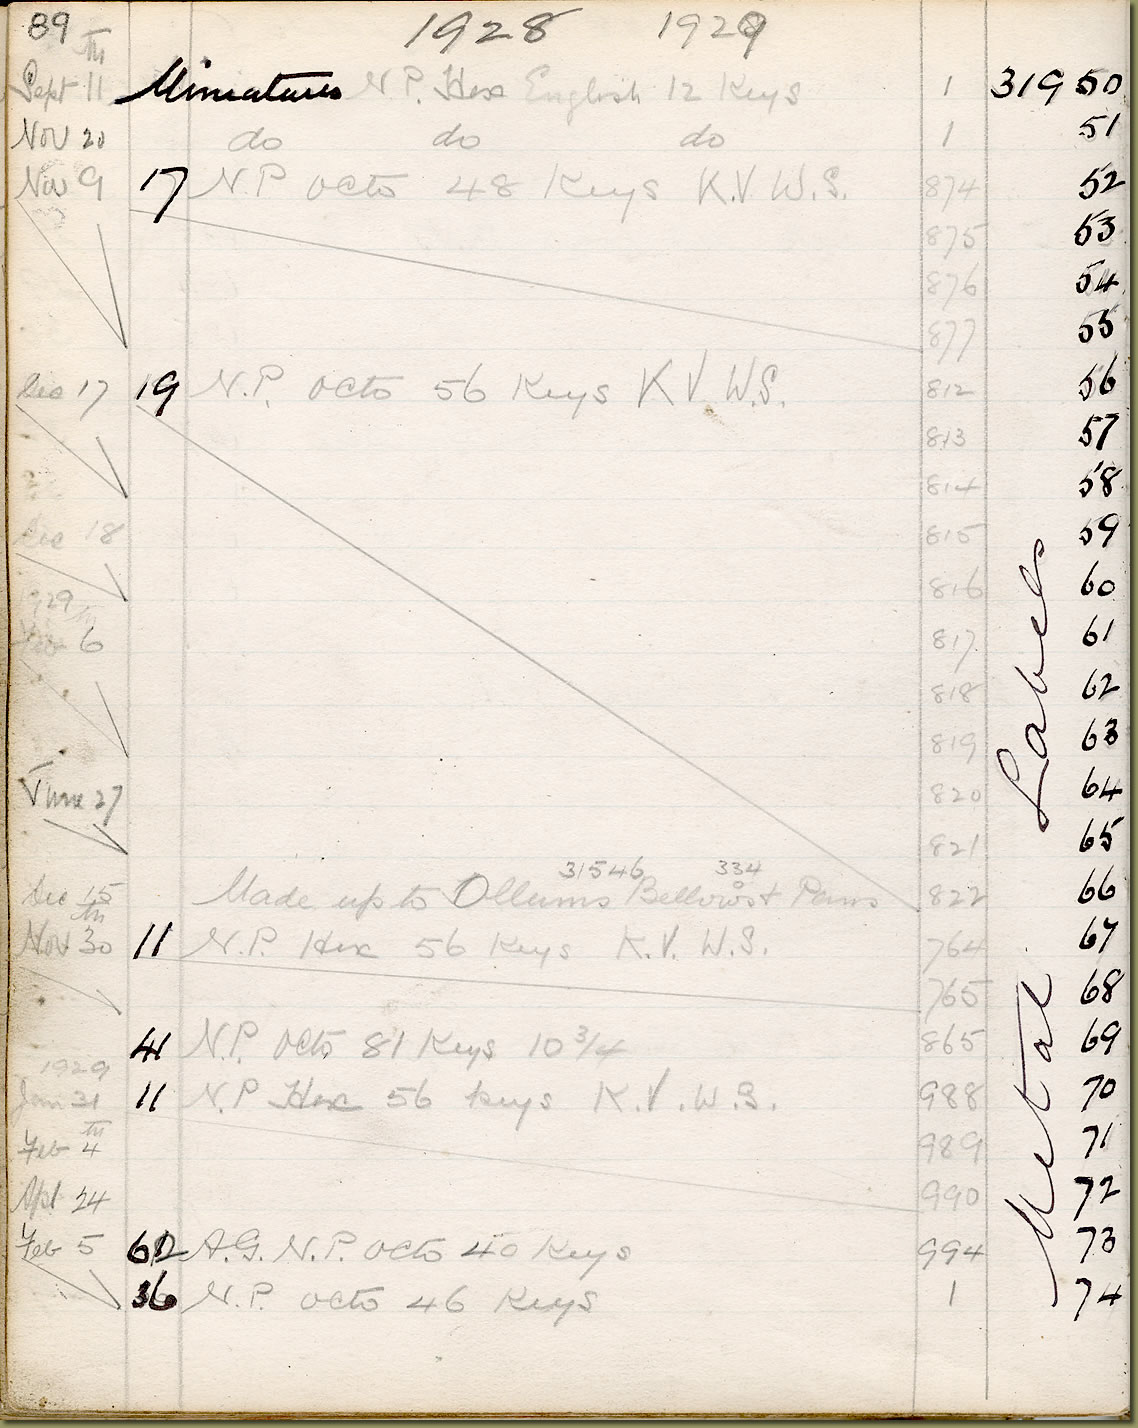 89 1928 1929
Sept 11th Miniatures N.P. Hex English 12 Keys 1 31950
Nov 20 do do do 1 51
Nov 9 17 N.P. octo 48 Keys K.V. W.S. 874 52
875 53
876 54
877 55
Dec 17 19 N.P. octo 56 Keys K.V. W.S. 812 56
813 57
814 58
Dec 18 815 59
1929 816 60
Feb 6th 817 61
818 62
819 63
June 27 820 64
821 65
31546 334
Dec 15 Made up to Ollums Bellows & Pans 822 66
Nov 30th 11 N.P. Hex 56 Keys K.V. W.S. 764 67
765 68
41 N.P. octo 81 Keys 10 3/4 865 69
1929
Jan 31 11 N.P. Hex 56 keys K.V. W.S. 988 70
Feb 4th 989 71
Apl 24 990 72
Feb 5 62 A.G. N.P. octo 40 Keys 994 73
36 N.P. octo 46 Keys 1 74
Metal Labels